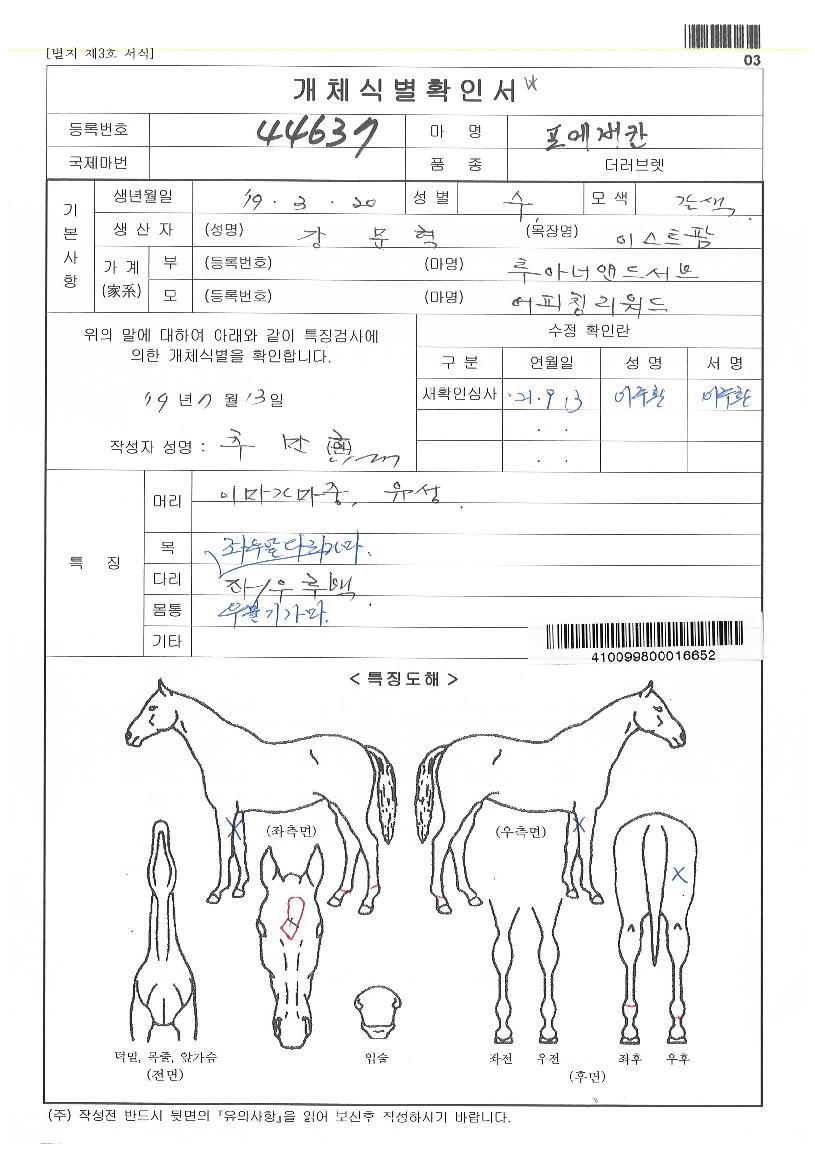 [별지 제3호 서식]
03
개체식별확인서
등록번호 44637 마 명 포에버칸
국제마번 품 종 더러브렛
기본사항
생년월일 '19 . 3 . 20 성별 수 모색 갈색
생산자 (성명) 강문혁 (목장명) 이스트팜
가계(家系) 부 (등록번호) (마명) 루아너앤드서브
모 (등록번호) (마명) 어피칭리워드
위의 말에 대하여 아래와 같이 특징검사에
의한 개체식별을 확인합니다.
'19 년 7 월 13 일
작성자 성명 : 추 만
수정 확인란
구분 연월일 성명 서명
새확인심사 '21. 9. 13
. .
. .
특 징
머리 이마가마중, 유성
목
다리 좌/우후백
몸통
기타
410099800016652
< 특징도해 >
(좌측면) (우측면)
턱밑, 목줄, 앞가슴
(전면)
입술
좌전 우전 좌후 우후
(후면)
(주) 작성전 반드시 뒷면의 『유의사항』을 읽어 보신후 작성하시기 바랍니다.